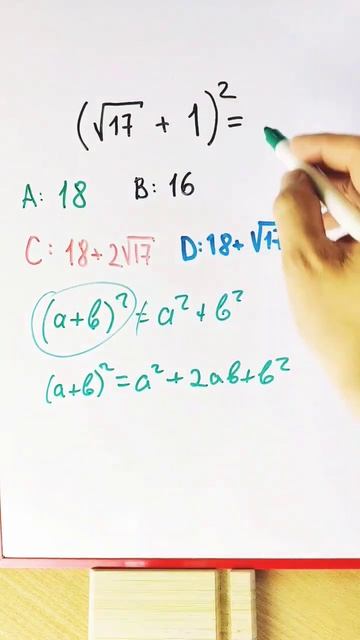 (√17 + 1)² =
A: 18 B: 16
C: 18+2√17 D: 18+√17
(a+b)² ≠ a² + b²
(a+b)² = a² + 2ab + b²